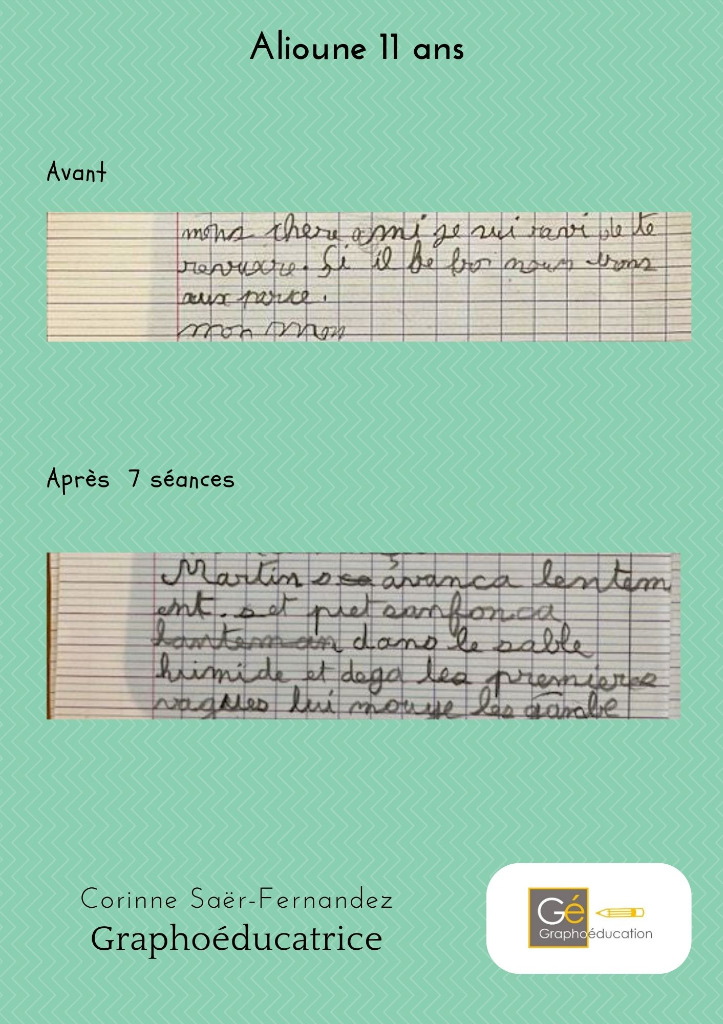 Alioune 11 ans
Avant
mons chere ami je sui ravi de te
renvoire. Si il be boi nous irons
aux parce.
mon mon
Après 7 séances
Martin s avanca lentem
ent. set piet sanfonca
lanteman dans le sable
humide et dega les premieres
vagues lui mouye les
Corinne Saër-Fernandez
Graphoéducatrice
Gé
Graphoéducation